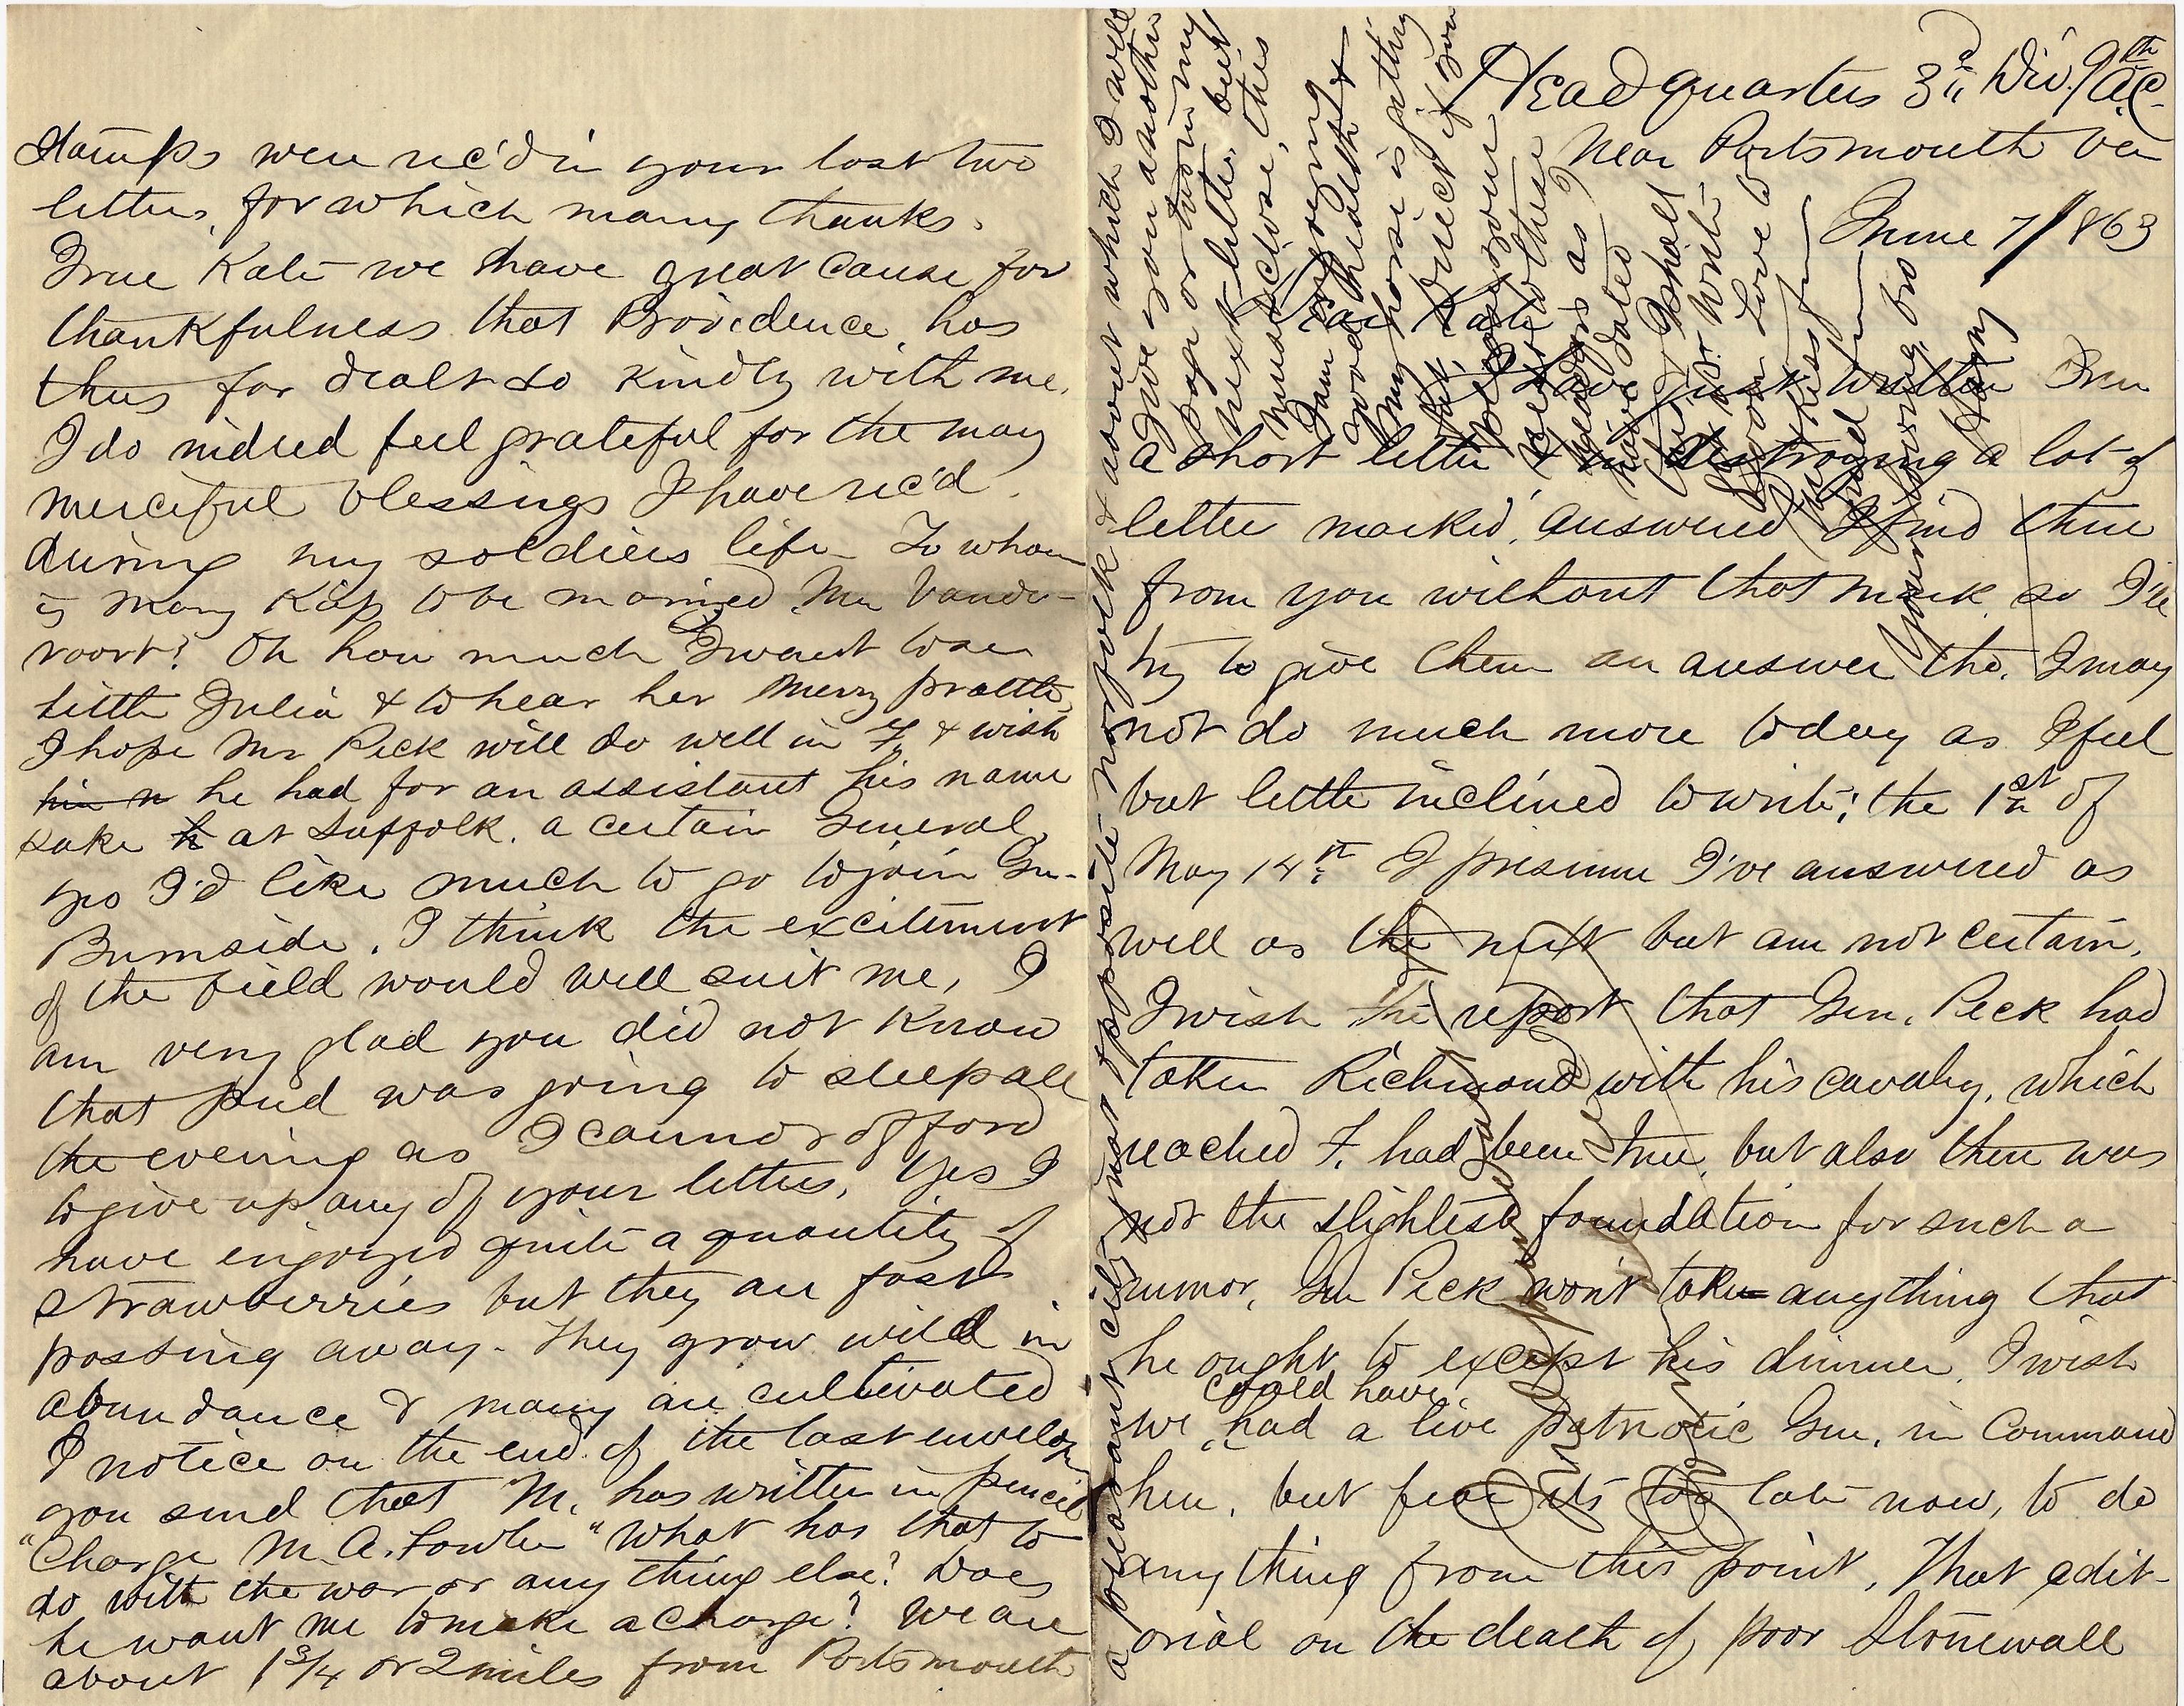 Headquarters 3d Div. 9th A.C.
Near Portsmouth Va
June 7/1863
Dear Kate
I have just written Fran
a short letter & in destroying a lot of
letter marked, answered I find three
from you without that mark so I'll
try to give them an answer tho. I may
not do much more today as I feel
but little inclined to write; the 1st of
May 14th I presume I've answered as
well as the next but am not certain.
I wish the report that Gen. Peck had
taken Richmond with his cavalry, which
reached F. had been true, but also there was
not the slightest foundation for such a
rumor, Gen Peck won't take anything that
he ought to except his dinner. I wish
could have
we had a live patriotic Gen. in command
here, but fear its too late now, to do
any thing from this point. That edit-
orial on the death of poor Stonewall
stamps were rec'd in your last two
letters, for which many thanks.
True Kate we have great cause for
thankfulness that Providence has
thus far dealt so kindly with me.
I do indeed feel grateful for the many
merciful blessings I have rec'd
during my soldiers life. To whom
is Mary Kap to be married Mr Vander-
voort? Oh how much I want to see
little Julia & to hear her merry prattle,
I hope Mr Peck will do well in F. & wish
he had for an assistant his name
sake at Suffolk. a certain General.
yes I'd like much to go to join Gen.
Burnside. I think the excitement
of the field would well suit me, I
am very glad you did not know
that Jud was going to sleep all
the evening as I cannot afford
to give up any of your letters. Yes I
have enjoyed quite a quantity of
strawberries but they are fast
passing away. They grow wild in
abundance & many are cultivated
I notice on the end of the last envelop
you send that M. has written in pencil
"Charge M. A. Fowler" what has that to
do with the war or any thing else? Does
he want me to make a charge? We are
about 1 3/4 or 2 miles from Portsmouth
a pleasant city just opposite Norfolk & about which I will
give you another
page or two in my
next letter, but
must close, this
I am enjoying
good health &
My horse is getting
fat. Direct if you
please your
next to these
Headqrs as
have dated
for I shall
Good
love to
& kiss for
Your loving bro